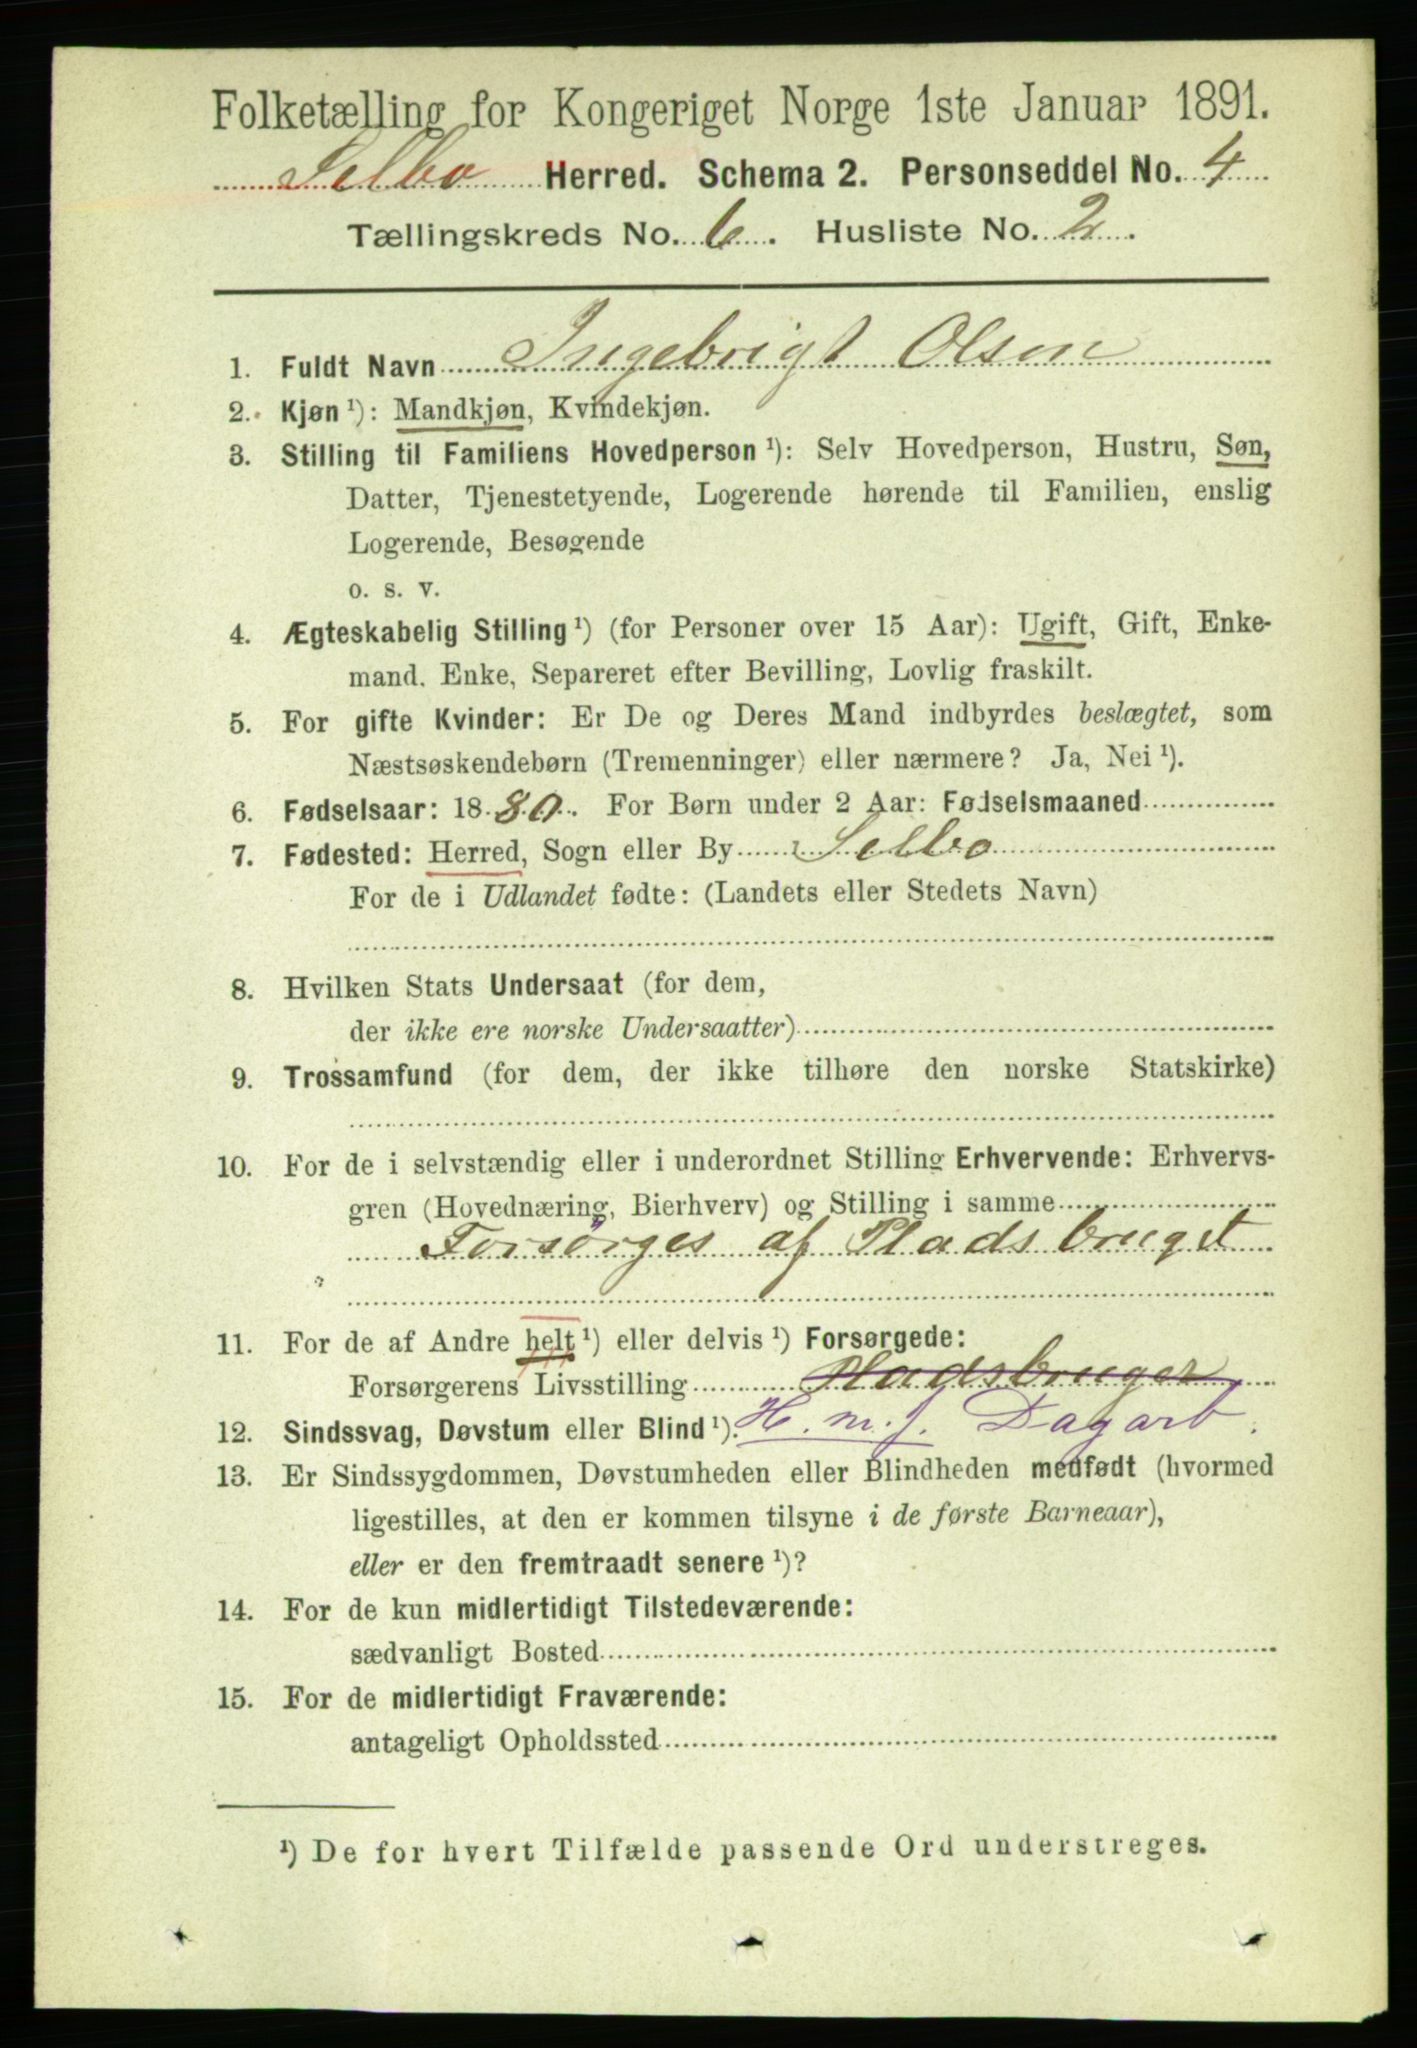 Folketælling for Kongeriget Norge 1ste Januar 1891.
Selbo Herred. Schema 2. Personseddel No. 4
Tællingskreds No. 6. Husliste No. 2.
1. Fuldt Navn Ingebrigt Olsen
2. Kjøn ¹): Mandkjøn, Kvindekjøn.
3. Stilling til Familiens Hovedperson ¹): Selv Hovedperson, Hustru, Søn,
Datter, Tjenestetyende, Logerende hørende til Familien, enslig
Logerende, Besøgende
o. s. v.
4. Ægteskabelig Stilling ¹) (for Personer over 15 Aar): Ugift, Gift, Enke-
mand. Enke, Separeret efter Bevilling, Lovlig fraskilt.
5. For gifte Kvinder: Er De og Deres Mand indbyrdes beslægtet, som
Næstsøskendebørn (Tremenninger) eller nærmere? Ja, Nei ¹).
6. Fødselsaar: 1880. For Børn under 2 Aar: Fødselsmaaned
7. Fødested: Herred, Sogn eller By Selbo
For de i Udlandet fødte: (Landets eller Stedets Navn)
8. Hvilken Stats Undersaat (for dem,
der ikke ere norske Undersaatter)
9. Trossamfund (for dem, der ikke tilhøre den norske Statskirke)
10. For de i selvstændig eller i underordnet Stilling Erhvervende: Erhvervs-
gren (Hovednæring, Bierhverv) og Stilling i samme
Forsørges af Pladsbruget
11. For de af Andre helt ¹) eller delvis ¹) Forsørgede:
Forsørgerens Livsstilling Pladsbruger
12. Sindssvag, Døvstum eller Blind ¹). H. m. j. Dagarb.
13. Er Sindssygdommen, Døvstumheden eller Blindheden medfødt (hvormed
ligestilles, at den er kommen tilsyne i de første Barneaar),
eller er den fremtraadt senere ¹)?
14. For de kun midlertidigt Tilstedeværende:
sædvanligt Bosted
15. For de midlertidigt Fraværende:
antageligt Opholdssted
¹) De for hvert Tilfælde passende Ord understreges.